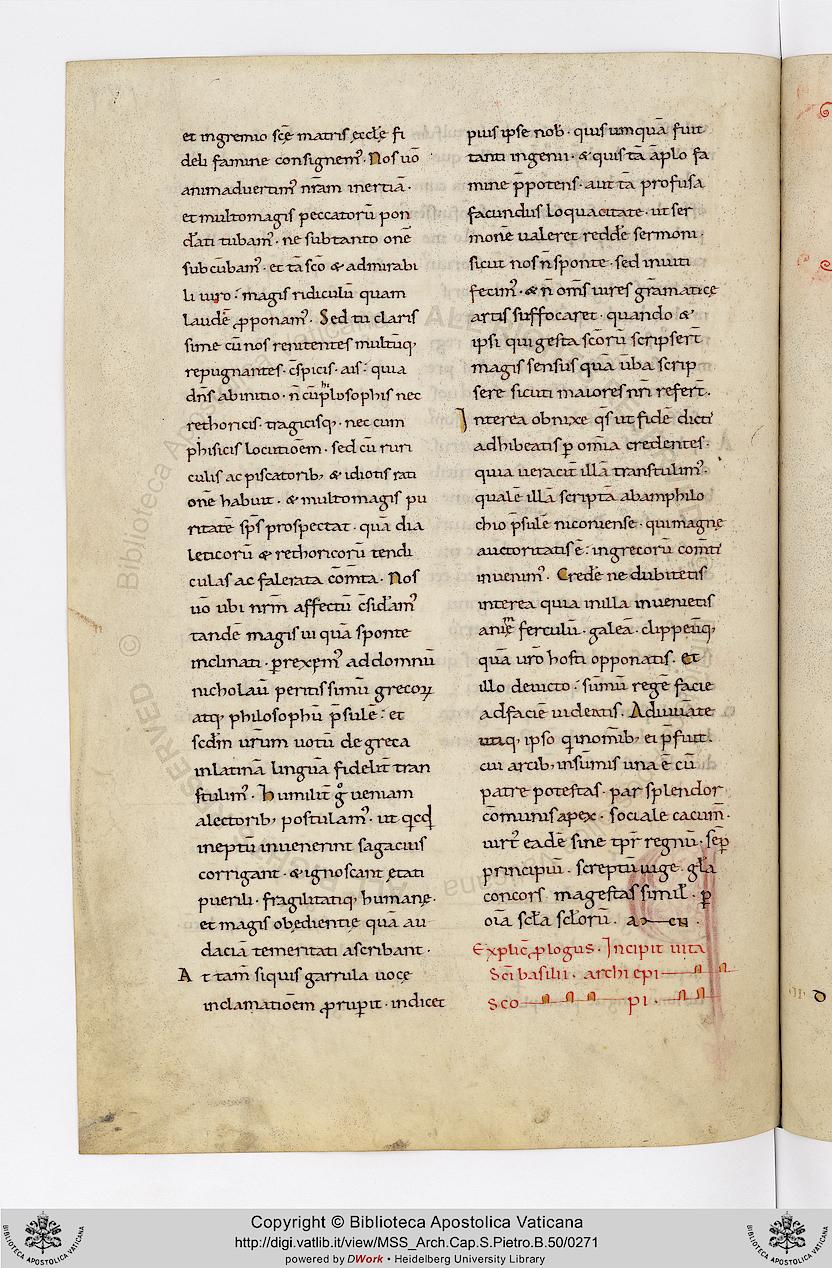 et ingremio sc̄ę matris ęccl̄e fi
deli famine consignem᾽. Nos uō
animaduertim᾽ nr̄am inertiā.
et multomagis peccatorū pon
d̄ati tubam᾽. ne subtanto onē
subcūbam᾽. et tā sc̄o & admirabi
li uiro: magis ridiculū quam
laudē ꝓponam᾽. Sed tu claris
sime cū nos renitentes multūq,
repugnantes. c̄spicis. ais: quia
dn̄s abinitio. n̄ cūphlosophis nec
rethoricis. tragicisq,. nec cum
phisicis locutioēm. sed cū ruri
culis ac piscatorib, & idiotis rati
onē habuit. & multomagis pu
ritatē sp̄s prospectat. quā dia
leticorū & rethoricorū tendi
culas ac falerata cōmta. Nos
uō ubi nrm̄ affectū c̄sid̄am᾽
tandē magis ui quā sponte
inclinati. p̄rexꝑm᾽ addomnū
nicholaū peritissimū grecoꝝ
atq, philosophū p̄sulē: et
scd̄m ur̄um uotū de greca
inlatinā linguā fidelit̄ tran
stulim᾽. Humilit̄ ḡ ueniam
alectorib, postulam᾽. ut qcq̄d
ineptū inuenerint sagacius
corrigant. & ignoscant ętati
puerili. fragilitatiq, humanę.
et magis obedientię quā au
daciā temeritati ascribant.
At tam̄ siquis garrula uocę
inclamatioēm ꝓruꝑit. indicet
pius ipse nob᾽. quis umquā fuit
tanti ingenii. & quis tā āplo fa
mine p̄potens. aut tā profusa
facundus loquacitate. ut ser
monē ualeret reddē sermoni.
sicut nos n̄ sponte. sed inuiti
fecim᾽. & n̄ om̄s uires grāmaticę
artis suffocaret. quando &
ipsi qui gesta sc̄orū scripser̄t
magis sensus quā ūba scrip
sere sicuti maiores nr̄i refer̄t.
Interea obnixe q̄s ut fidē dicti
adhibeatis ꝑ om̄ia credentes.
quia ueracit̄ illā transtulim᾽.
qualē illā scriptā abamphilo
chio p̄sulē niconiense. qui magnę
auctoritatis ē: ingrecorū com̄ti
inuenim᾽. Credē ne dubitetis
interea quia inilla inuenietis
animę ferculū. galeā. clippeūq,
quā uiro hosti opponatis. et
illo deuicto: sūmū regē facie
adfaciē uideatis. Adiuuāte
utiq, ipso q inomīb, ei p̄fuit.
cui artib, insūmis una ē cū
patre potestas. par splendor
cōmunis apex. sociale cacum̄.
uirt᾽ eadē sine tp̄r regnū. sēp
principiū. sceptū uige. gl̄a
concors. magestas simil᾽. ꝑ
oīa scl̄a scl̄orū. amen.
Explic̄ ꝓlogus. Incipit uita
Sc̄i basilii. archi epi
sco pi.
Copyright © Biblioteca Apostolica Vaticana
http://digi.vatlib.it/view/MSS_Arch.Cap.S.Pietro.B.50/0271
powered by DWork • Heidelberg University Library